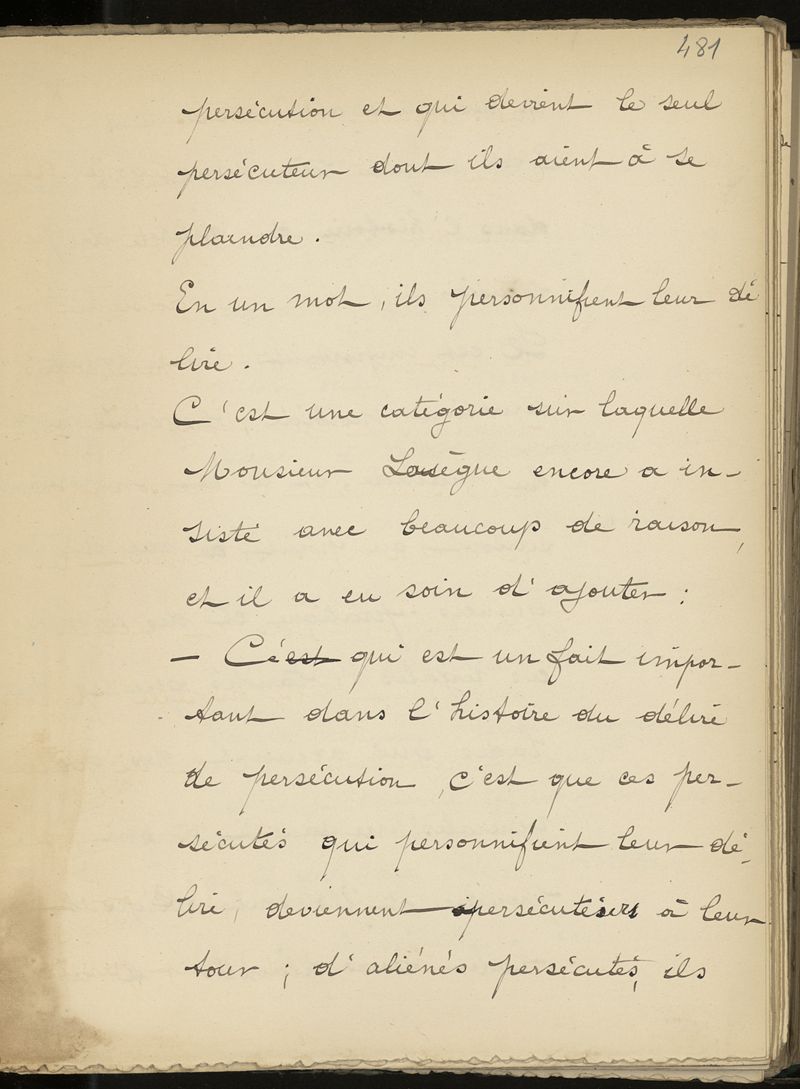 481
persécution et qui devient le seul
persécuteur dont ils aient à se
plaindre.
En un mot, ils personnifient leur dé
lire.
C'est une catégorie sur laquelle
Monsieur Lasègue encore a in-
sisté avec beaucoup de raison,
et il a eu soin d'ajouter :
— Ce qui est un fait impor-
tant dans l'histoire du délire
de persécution, c'est que ces per-
sécutés qui personnifient leur dé-
lire, deviennent persécuteurs à leur
tour ; d'aliénés persécutés, ils